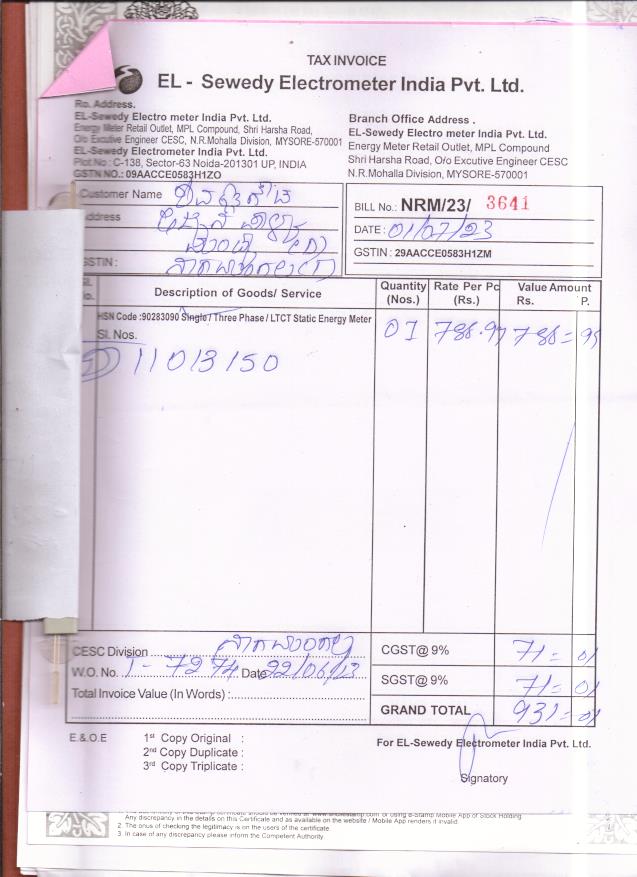 TAX INVOICE
EL - Sewedy Electrometer India Pvt. Ltd.
Ro. Address.
EL-Sewedy Electro meter India Pvt. Ltd.
Energy Meter Retail Outlet, MPL Compound, Shri Harsha Road,
O/o Excutive Engineer CESC, N.R.Mohalla Division, MYSORE-570001
EL-Sewedy Electrometer India Pvt. Ltd.
Plot No : C-138, Sector-63 Noida-201301 UP, INDIA
GSTN NO.: 09AACCE0583H1ZO
Branch Office Address .
EL-Sewedy Electro meter India Pvt. Ltd.
Energy Meter Retail Outlet, MPL Compound
Shri Harsha Road, O/o Excutive Engineer CESC
N.R.Mohalla Division, MYSORE-570001
Customer Name
ddress
GSTIN :
BILL No.: NRM/23/ 3641
DATE : 01/07/23
GSTIN : 29AACCE0583H1ZM
Description of Goods/ Service
Quantity (Nos.)
Rate Per Pc (Rs.)
Value Amount Rs. P.
HSN Code :90283090 Single / Three Phase / LTCT Static Energy Meter
Sl. Nos.
01 788.97 788=95
11013150
CESC Division
W.O. No. 1-7274 Date 22/06/23
Total Invoice Value (In Words) :
CGST@ 9% 71=01
SGST@ 9% 71=01
GRAND TOTAL 931=01
E.& O.E
1st Copy Original :
2nd Copy Duplicate :
3rd Copy Triplicate :
For EL-Sewedy Electrometer India Pvt. Ltd.
Signatory
Any discrepancy in the details on this Certificate and as available on the website / Mobile App renders it invalid.
2. The onus of checking the legitimacy is on the users of the certificate.
3. In case of any discrepancy please inform the Competent Authority.